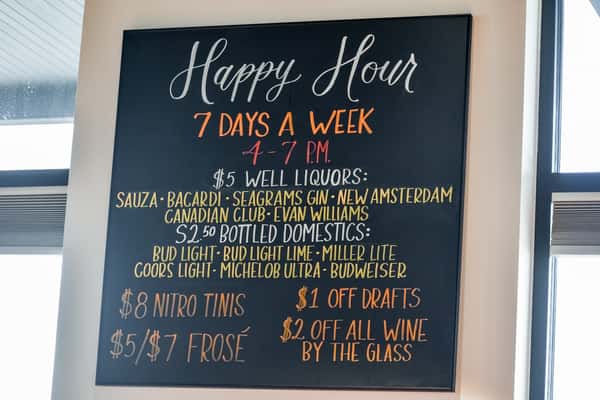 Happy Hour
7 DAYS A WEEK
4-7 P.M.
$5 WELL LIQUORS:
SAUZA · BACARDI · SEAGRAMS GIN · NEW AMSTERDAM
CANADIAN CLUB · EVAN WILLIAMS
$2.50 BOTTLED DOMESTICS:
BUD LIGHT · BUD LIGHT LIME · MILLER LITE
COORS LIGHT · MICHELOB ULTRA · BUDWEISER
$8 NITRO TINIS
$5/$7 FROSÉ
$1 OFF DRAFTS
$2 OFF ALL WINE
BY THE GLASS